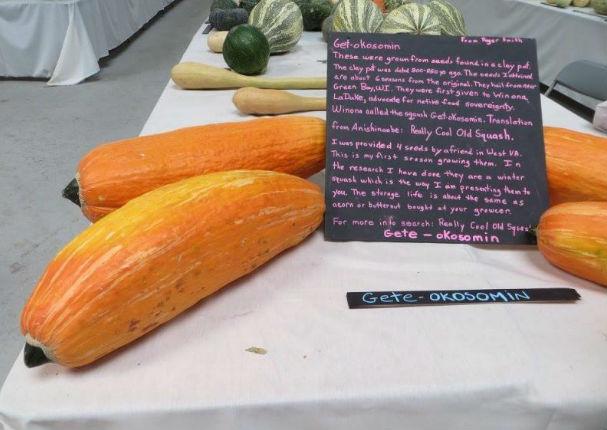 Get-okosomin From Roger Smith
These were grown from seeds found in a clay pot.
The clay pot was dated 800-850 yrs ago. The seeds I obtained
are about 6 seasons from the original. They hail from near
Green Bay, WI. They were first given to Winona
LaDuke, advocate for native food sovereignty.
Winona called the squash Get-okosomin. Translation
from Anishinaabe: Really Cool Old Squash.
I was provided 4 seeds by a friend in West VA.
This is my first season growing them. In
the research I have done they are a winter
squash which is the way I am presenting them to
you. The storage life is about the same as
acorn or butternut bought at your grocer.
For more info search: Really Cool Old Squash
Gete-okosomin
Gete-OKOSOMIN